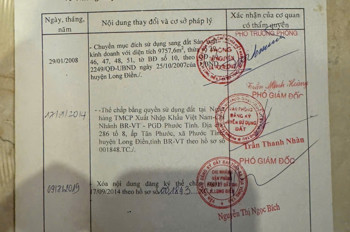 Ngày, tháng, năm
Nội dung thay đổi và cơ sở pháp lý
Xác nhận của cơ quan có thẩm quyền
29/01/2008
- Chuyển mục đích sử dụng sang đất Sản
kinh doanh với diện tích 9757,6m², thửa
46, 47, 48, 51, tờ BĐ số 10, theo QĐ
2249/QĐ-UBND ngày 25/10/2007
huyện Long Điền.
PHÓ TRƯỞNG PHÒNG
Trần Minh Hoàng
PHÓ GIÁM ĐỐC
- Thế chấp bằng quyền sử dụng đất tại Ngân
hàng TMCP Xuất Nhập Khẩu Việt Nam-Chi
Nhánh BR-VT - PGD Phước Tỉnh, Địa
286 tổ 8, ấp Tân Phước, xã Phước Tỉnh
huyện Long Điền, tỉnh BR-VT theo hồ sơ số
001848.TC./.
Trần Thanh Nhàn
PHÓ GIÁM ĐỐC
- Xóa nội dung đăng ký thế chấp
17/09/2014 theo hồ sơ số
Nguyễn Thị Ngọc Bích